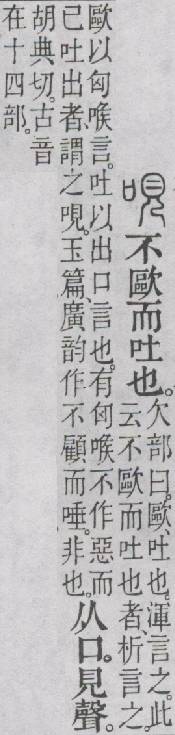 哯
不歐而吐也。
欠部曰。歐、吐也。渾言之。此
云不歐而吐也者、析言之。
歐以匈喉言。吐以出口言也。有匈喉不作惡而
已吐出者、謂之哯。玉篇、廣韵作不顧而唾。非也。
从口。見聲。
胡典切。古音
在十四部。